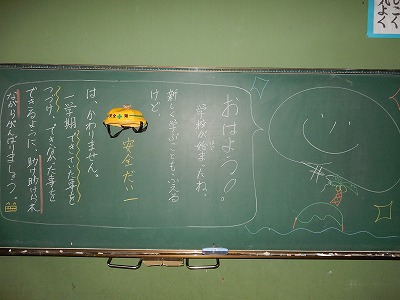 おはよう。
学校が始まったね。
新しく学ぶこともふえる
けど、
安全だい一
は、かわりません。
一学期できていた事を
つづけ、できなかった事を
できるように、助け助けられ
ながらがんばりましょう。